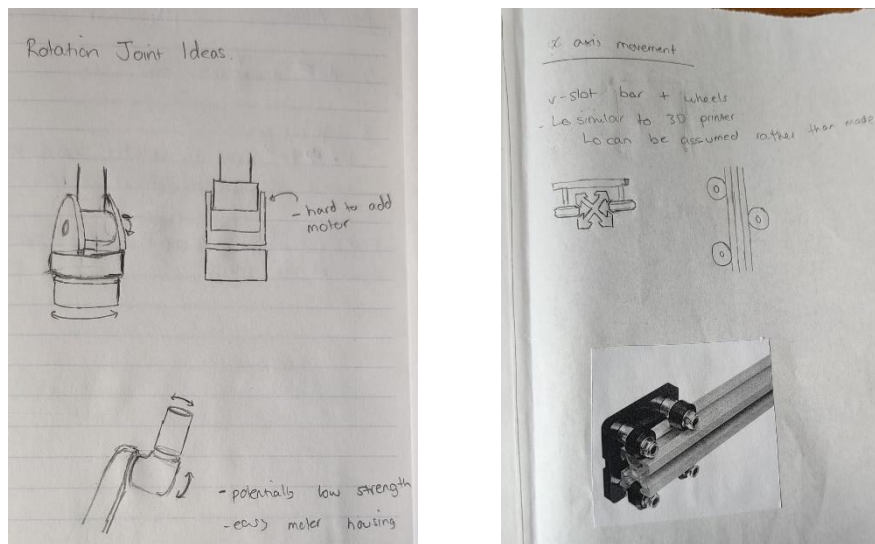 Rotation Joint Ideas.
- hard to add
motor
- potentially low strength
- easy moter housing
x axis movement
v-slot bar + wheels
- Lo simular to 3D printer
Lo can be assumed rather than made